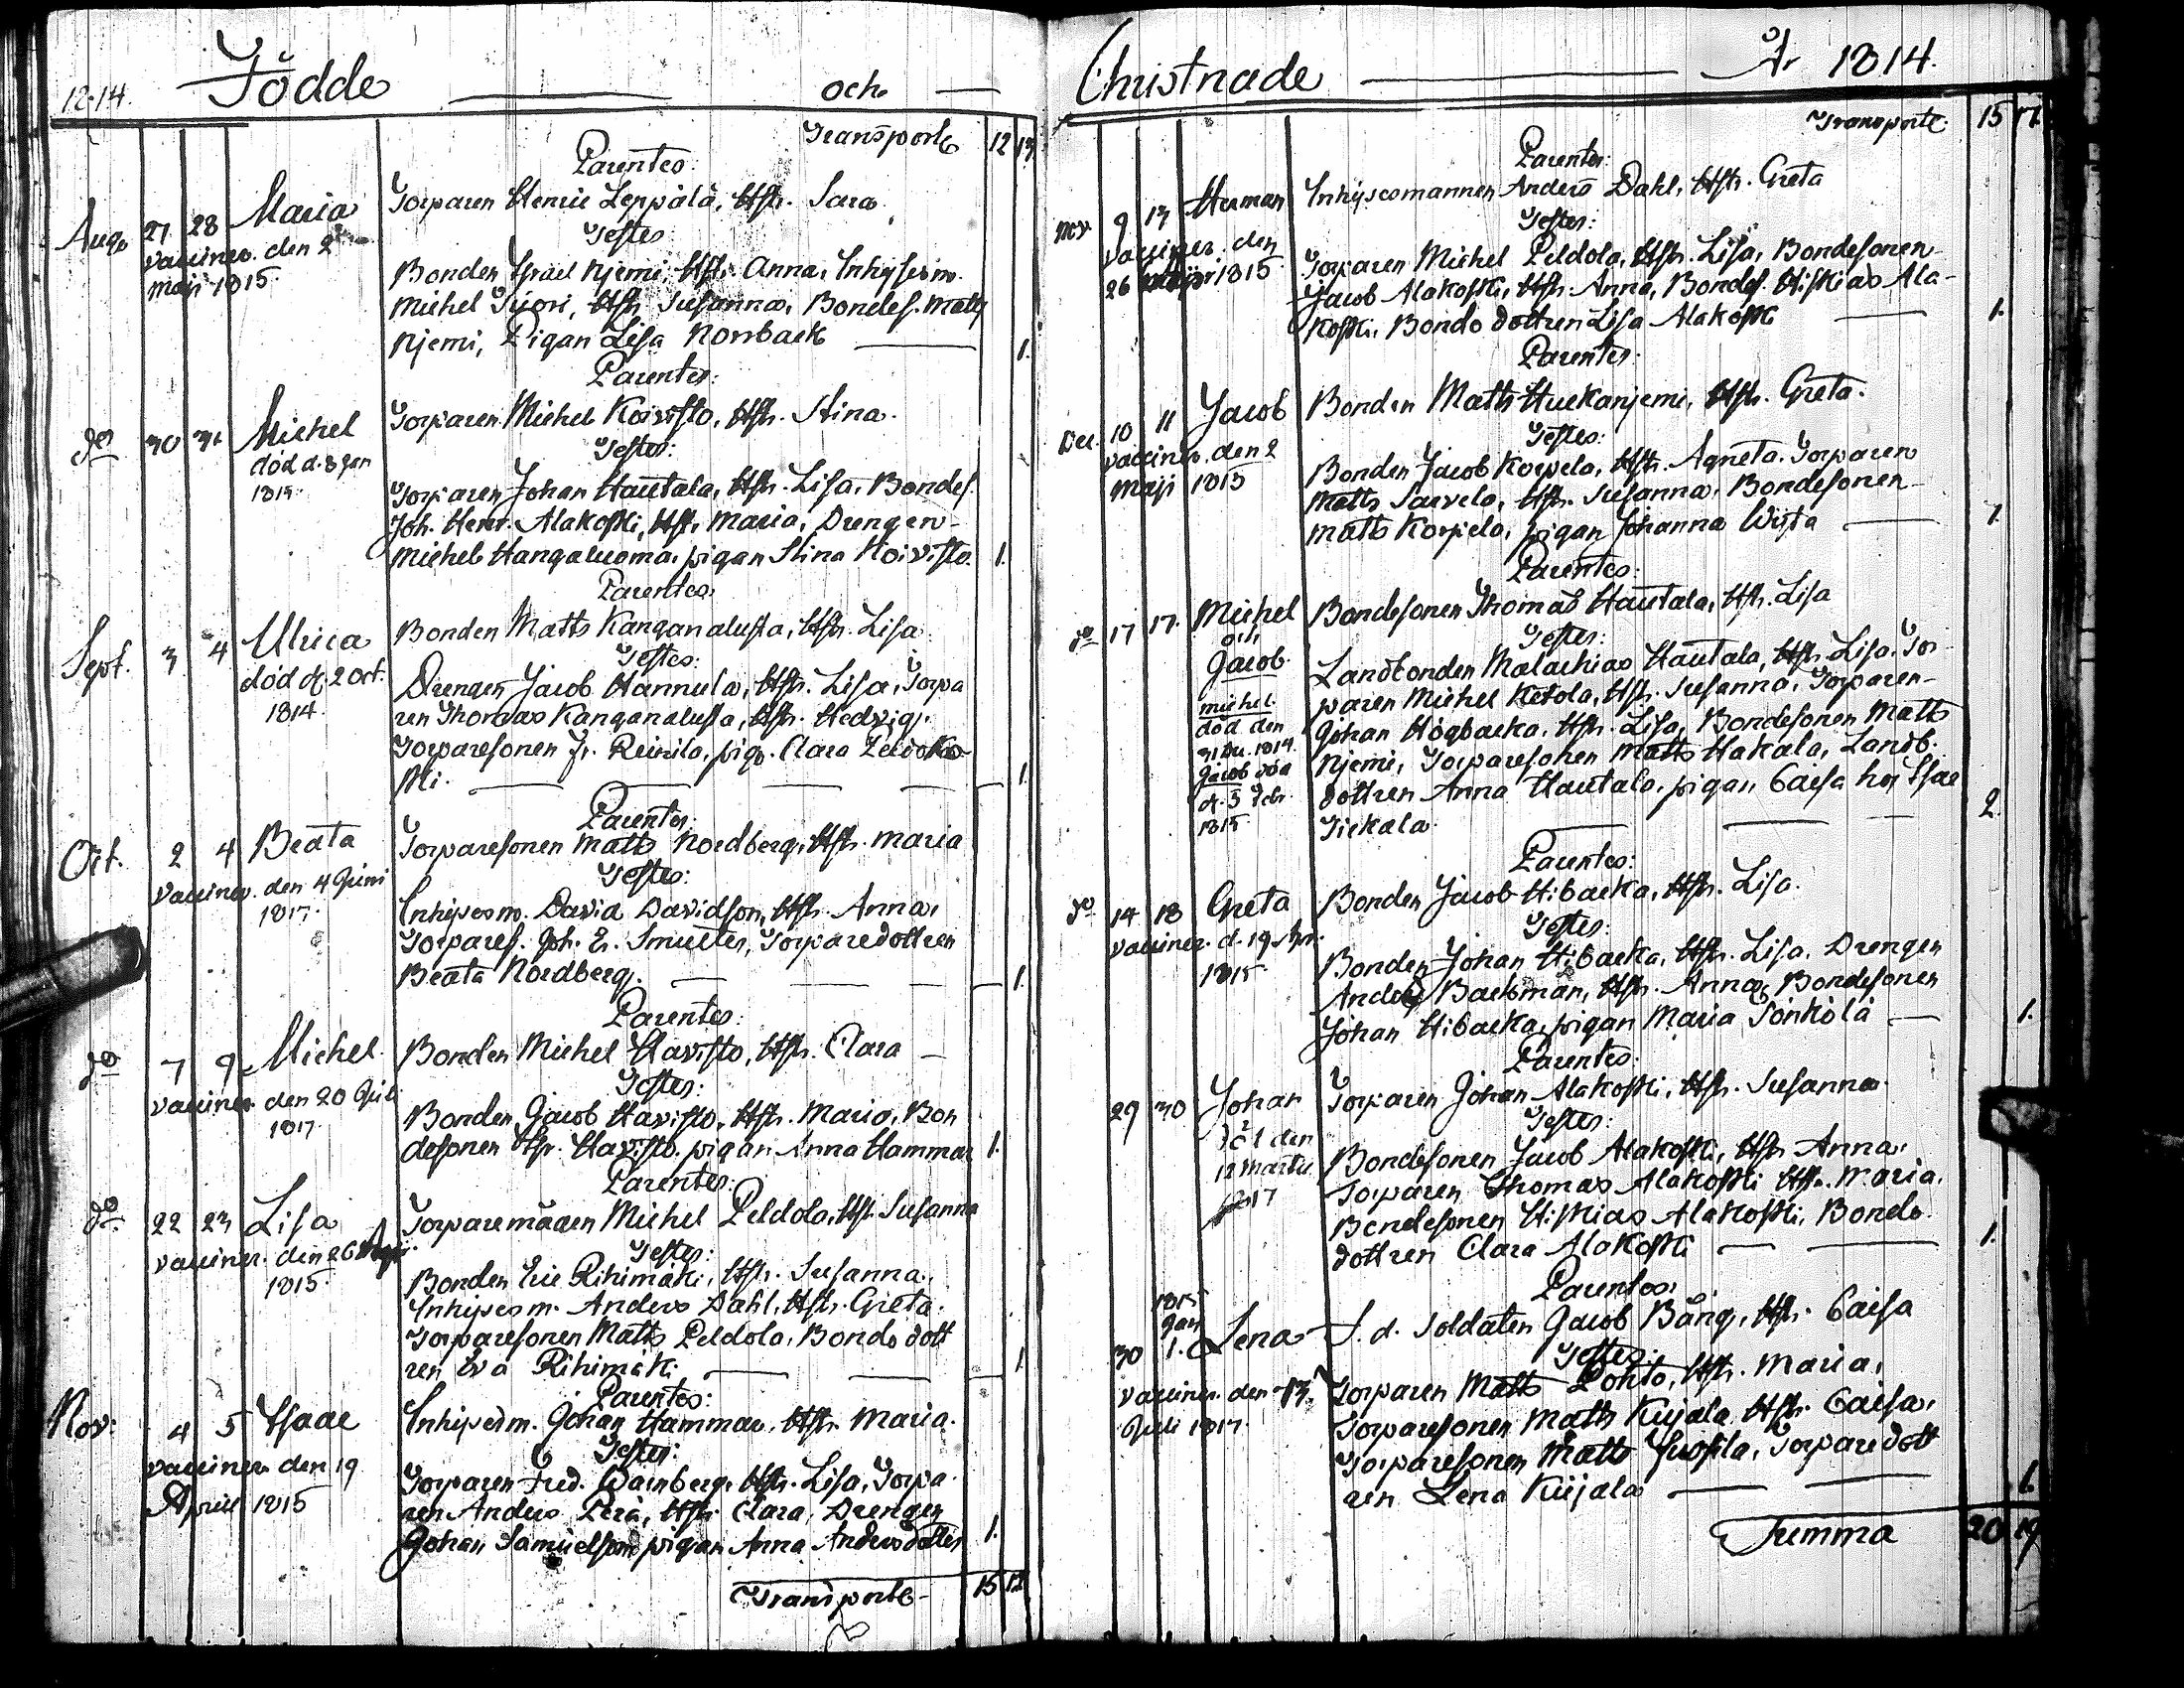 12.14. Födde — och —
Transport 12 13
Parentes
Aug. 27 28 Maria Torparen Henric Leppälä, Hstr. Sara.
Testes
vacciner. den 2
maji 1815.
Bonden Israel Njemi, Hstr. Anna, Inhysesm.
Michel Hstr. Susanna, Bondes. Matts
Njemi, Pigan Lisa Norrback — 1.
Parentes:
do 30 31 Michel Torparen Michel Koivisto, Hstr. Stina.
död d. 8 Jan
1815.
Testes:
Torparen Johan Hautala, Hstr. Lisa, Bondes.
Joh. Henr. Alakoski, Hstr. Maria, Drengen
Michel Hangaluoma, pigan Stina Koivisto. 1.
Parentes
Sept. 3 4 Ulrica Bonden Matts Kanganalusta, Hstr. Lisa
död d. 2 Oct.
1814.
Testes:
Drengen Jacob Hannula, Hstr. Lisa, Torpa
ren Thomas Kanganalusta, Hstr. Hedvig,
Torparesonen Reinila, pig. Clara
— 1
Parentes
Oct. 2 4 Beata Torparesonen Matts Nordberg, Hstr. Maria
vacciner. den 4 Juni
1817.
Testes:
Inhysesm. David Davidson, Hstr. Anna,
Torpares. Joh. Er. Torparedottren
Beata Nordberg. — 1.
Parentes:
do 7 9 Michel Bonden Michel Havisto, Hstr. Clara —
vacciner. den 20 Juli
1817
Testes:
Bonden Jacob Havisto, Hstr. Maria, Bon
desonen Havisto, pigan Anna Hammar 1.
Parentes:
do 22 23 Lisa Torparemågen Michel Peldola, Hstr. Susanna
vacciner. den 26
1815.
Testes:
Bonden Eric Rihimäki, Hstr. Susanna,
Inhysesm. Anders Dahl, Hstr. Greta.
Torparesonen Matts Peldola, Bondedott
ren Eva Rihimäki — 1.
Parentes:
Nov. 4 5 Isaac Inhysesm. Johan Hammar, Hstr. Maria.
vacciner den 19
April 1815
Testes:
Torparen Fred. Wainberg, Hstr. Lisa, Torpa
ren Anders Perä, Hstr. Clara, Drengen
Johan Samuelson pigan Anna Andersdotter 1.
Transport 15 17
Christnade — År 1814.
Transport 15 17.
Parentes:
Nov. 9 13 Herman Inhysesmannen Anders Dahl, Hstr. Greta
vacciner. den
26 1815.
Testes:
Torparen Michel Peldola, Hstr. Lisa, Bondesonen
Jacob Alakoski, Hstr. Anna, Bondes. Hiskias Ala-
koski, Bondedottren Lisa Alakoski — 1.
Parentes:
Dec. 10 11 Jacob Bonden Matts Huckanjemi, Hstr. Greta.
vacciner. den 2
Maji 1815
Testes:
Bonden Jacob Korpela, Hstr. Agneta. Torparen
Matts Sarvela, Hstr. Susanna, Bondesonen
Matts Korpela, pigan Johanna Wista — 1.
Parentes:
do 17 17. Michel Bondesonen Thomas Hautala, Hstr. Lisa
och
Jacob.
Michel
död den
31 Dec. 1814.
Jacob död
d. 5 Febr.
1815
Testes:
Landbonden Malachias Hautala, Hstr. Lisa, Tor
paren Michel Ketola, Hstr. Susanna, Torparen
Johan Högbacka, Hstr. Lisa, Bondesonen Matts
Njemi, Torparesonen Matts Hakala, Landb.
dottren Anna Hautala, pigan Caisa hos Isac
— 2.
Parentes:
do 14 18 Greta Bonden Jacob Hibacka, Hstr. Lisa.
vacciner. d. 19 Apr.
1815.
Testes:
Bonden Johan Hibacka, Hstr. Lisa, Drengen
Anders Backman, Hstr. Anna, Bondesonen
Johan Hibacka, pigan Maria Pönkölä — 1.
Parentes.
29 30 Johan Torparen Johan Alakoski, Hstr. Susanna
död den
12 Martii
1817
Testes:
Bondesonen Jacob Alakoski, Hstr. Anna,
Torparen Thomas Alakoski Hstr. Maria.
Bondesonen Hiskias Alakoski, Bonde
dottren Clara Alakoski — 1.
Parentes:
1815
Jan
30 1. Lena S. d. Soldaten Jacob Bång, Hstr. Caisa
vacciner. den 13.
Juli 1817.
Testes:
Torparen Matts Pohto, Hstr. Maria,
Torparesonen Matts Kujala Hstr. Caisa,
Torparesonen Matts Torparedott
ren Lena Kujala — 1.
Summa 20 19